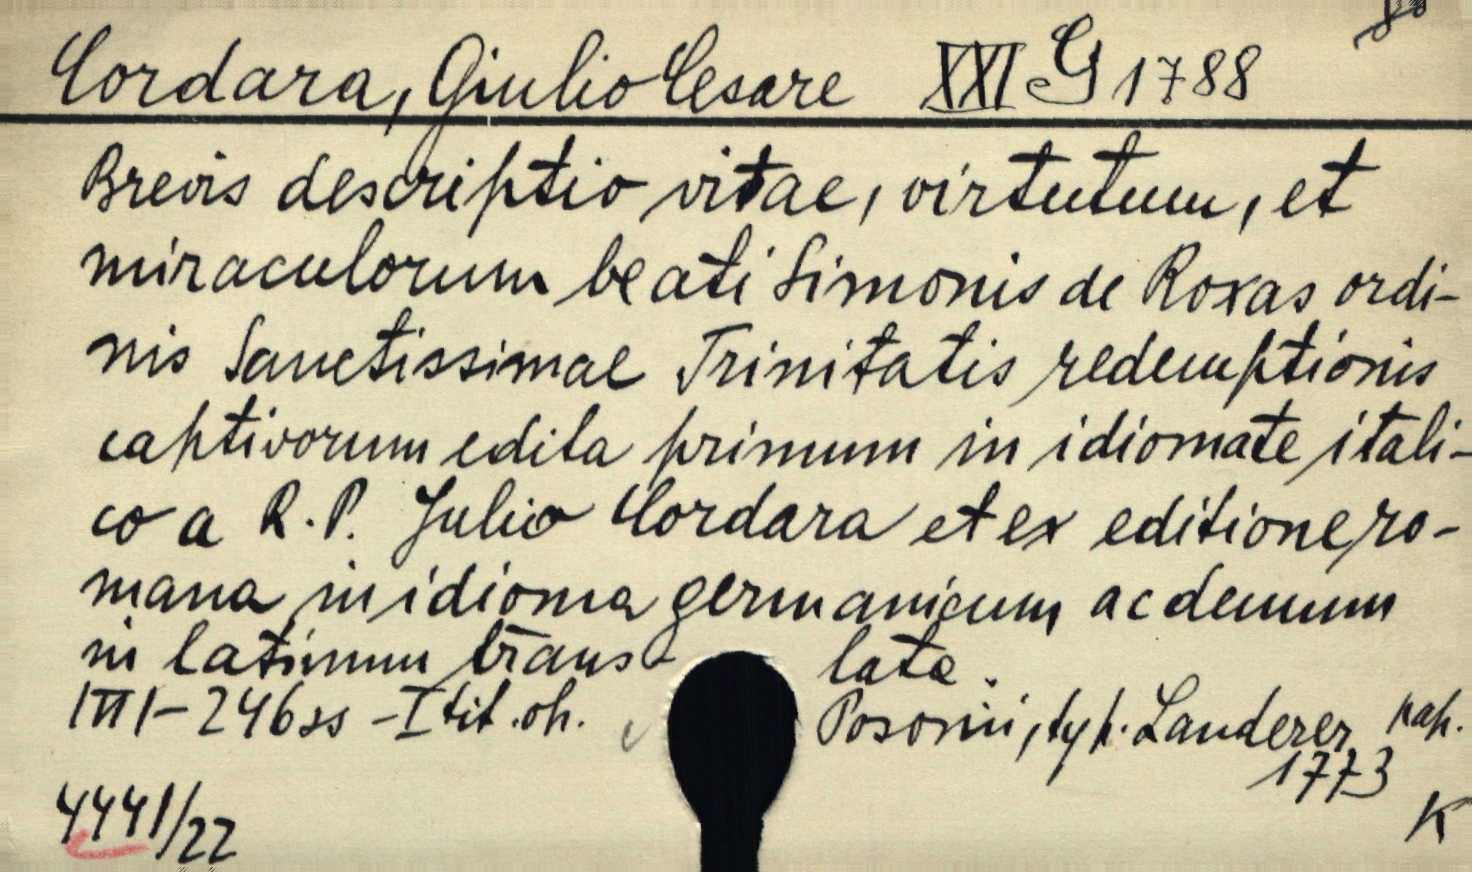 8°
Cordara, Giulio Cesare XXI G 1788
Brevis descriptio vitae, virtutum, et
miraculorum beati Simonis de Roxas ordi-
nis Sanctissimae Trinitatis redemptionis
captivorum edita primum in idiomate itali-
co a R.P. Julio Cordara et ex editione ro-
mana in idioma germanicum ac demum
in latinum trans- lata.
|III|-246ss -I tit.oh. Posonii, typ. Landerer
1773
4441/22
K